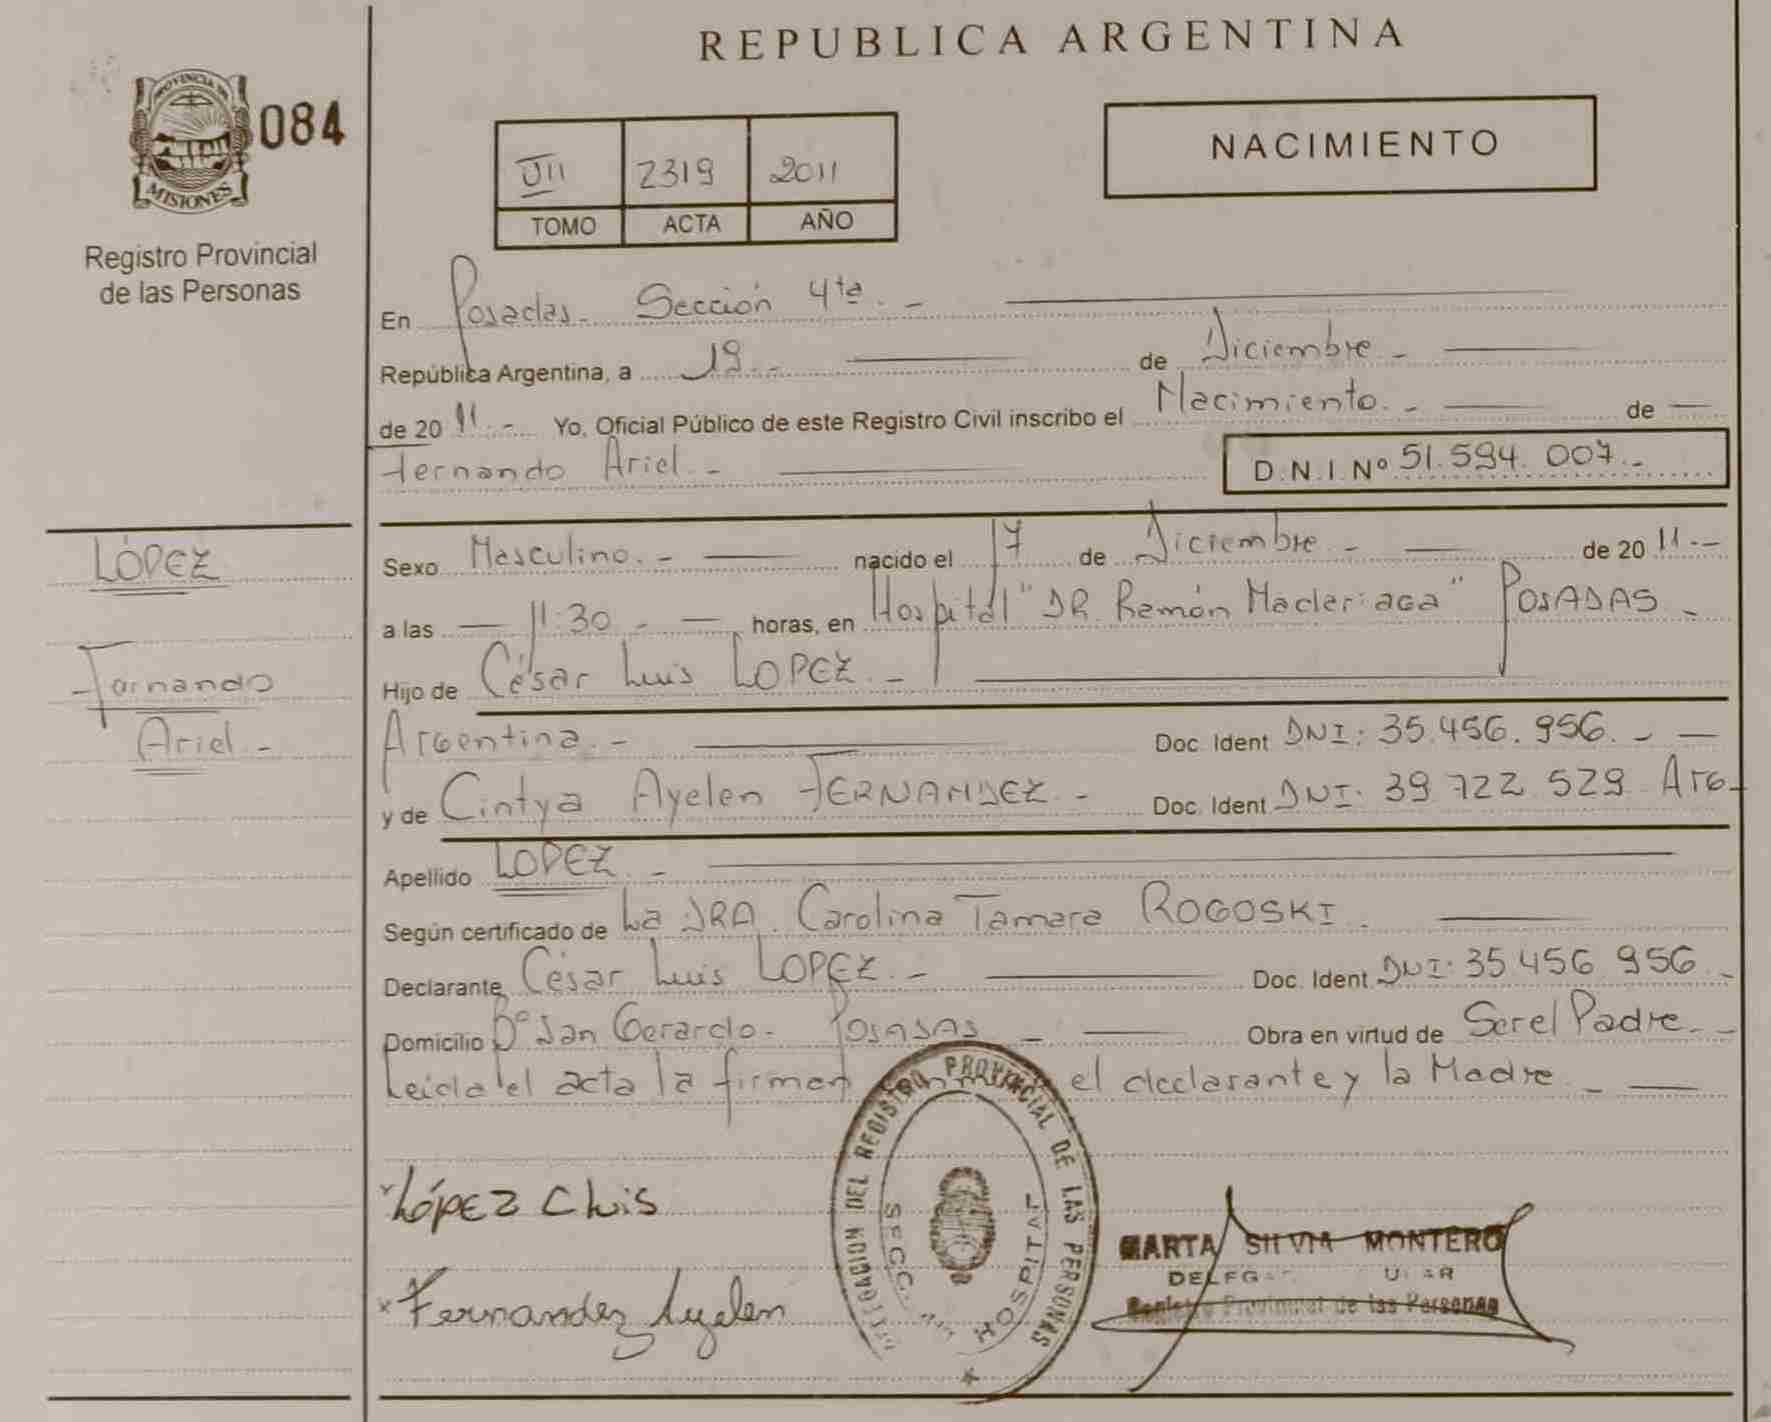 REPUBLICA ARGENTINA
PROVINCIA DE
MISIONES
084
Registro Provincial
de las Personas
VII 2319 2011
TOMO ACTA AÑO
NACIMIENTO
En Posadas - Sección 4ta. -
República Argentina, a 19. - de Diciembre -
de 20 11. - Yo, Oficial Público de este Registro Civil inscribo el Nacimiento. - de
Fernando Ariel - D.N.I. Nº 51.594.007. -
LÓPEZ
Fernando
Ariel -
Sexo Masculino. - nacido el 17 de Diciembre - de 20 11. -
a las 11:30 - horas, en Hospital "DR. Ramón Maderiaga" POSADAS -
Hijo de César Luis LOPEZ. -
Argentina. - Doc. Ident DNI: 35.456.956. -
y de Cintya Ayelen FERNANDEZ. - Doc. Ident DNI: 39 722 529 Arg.
Apellido LOPEZ. -
Según certificado de La DRA. Carolina Tamara ROGOSKI. -
Declarante César Luis LOPEZ. - Doc. Ident DNI: 35 456 956 -
Domicilio Bº San Gerardo - POSADAS - Obra en virtud de Ser el Padre. -
Leida el acta la firman el declarante y la Madre. -
DEL REGISTRO PROVINCIAL DE LAS PERSONAS
SECC. HOSPITAL
LÓPEZ C Luis
Fernandez Ayelen
MARTA SILVIA MONTERO
Registro Provincial de las Personas